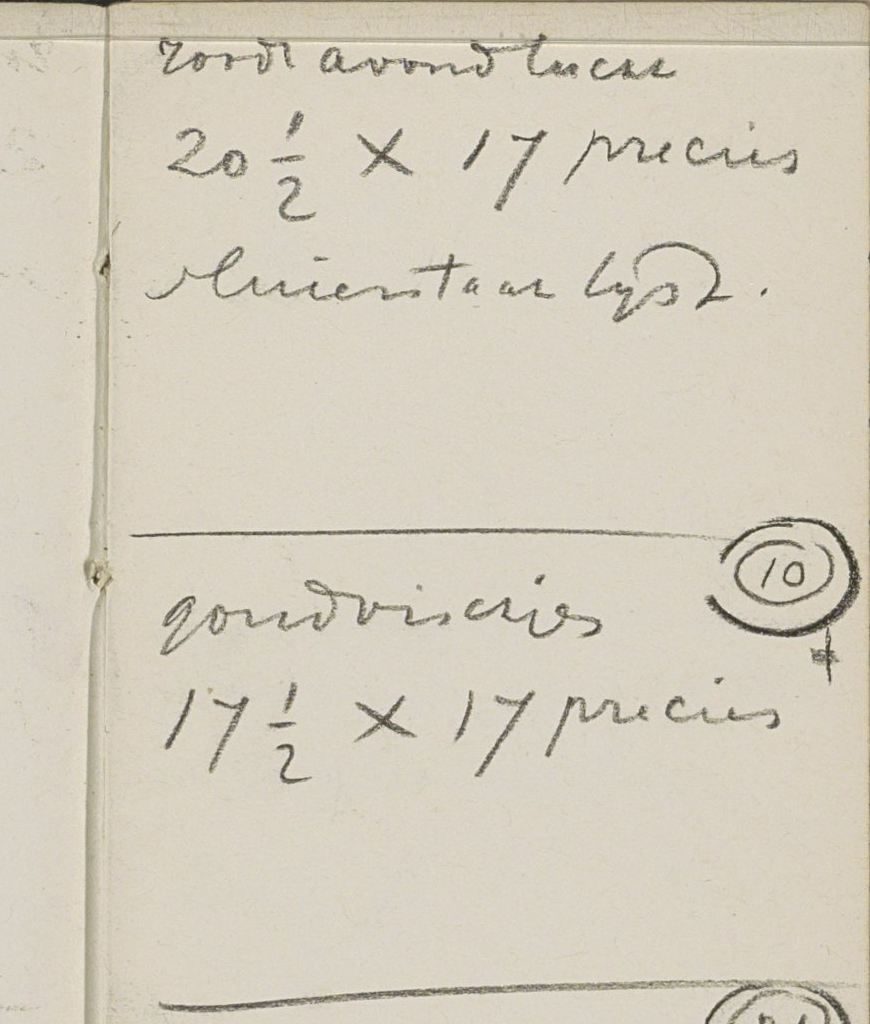 roode avondlucht
20 1/2 X 17 precies
lyst.
10
goudvischjes
17 1/2 X 17 precies